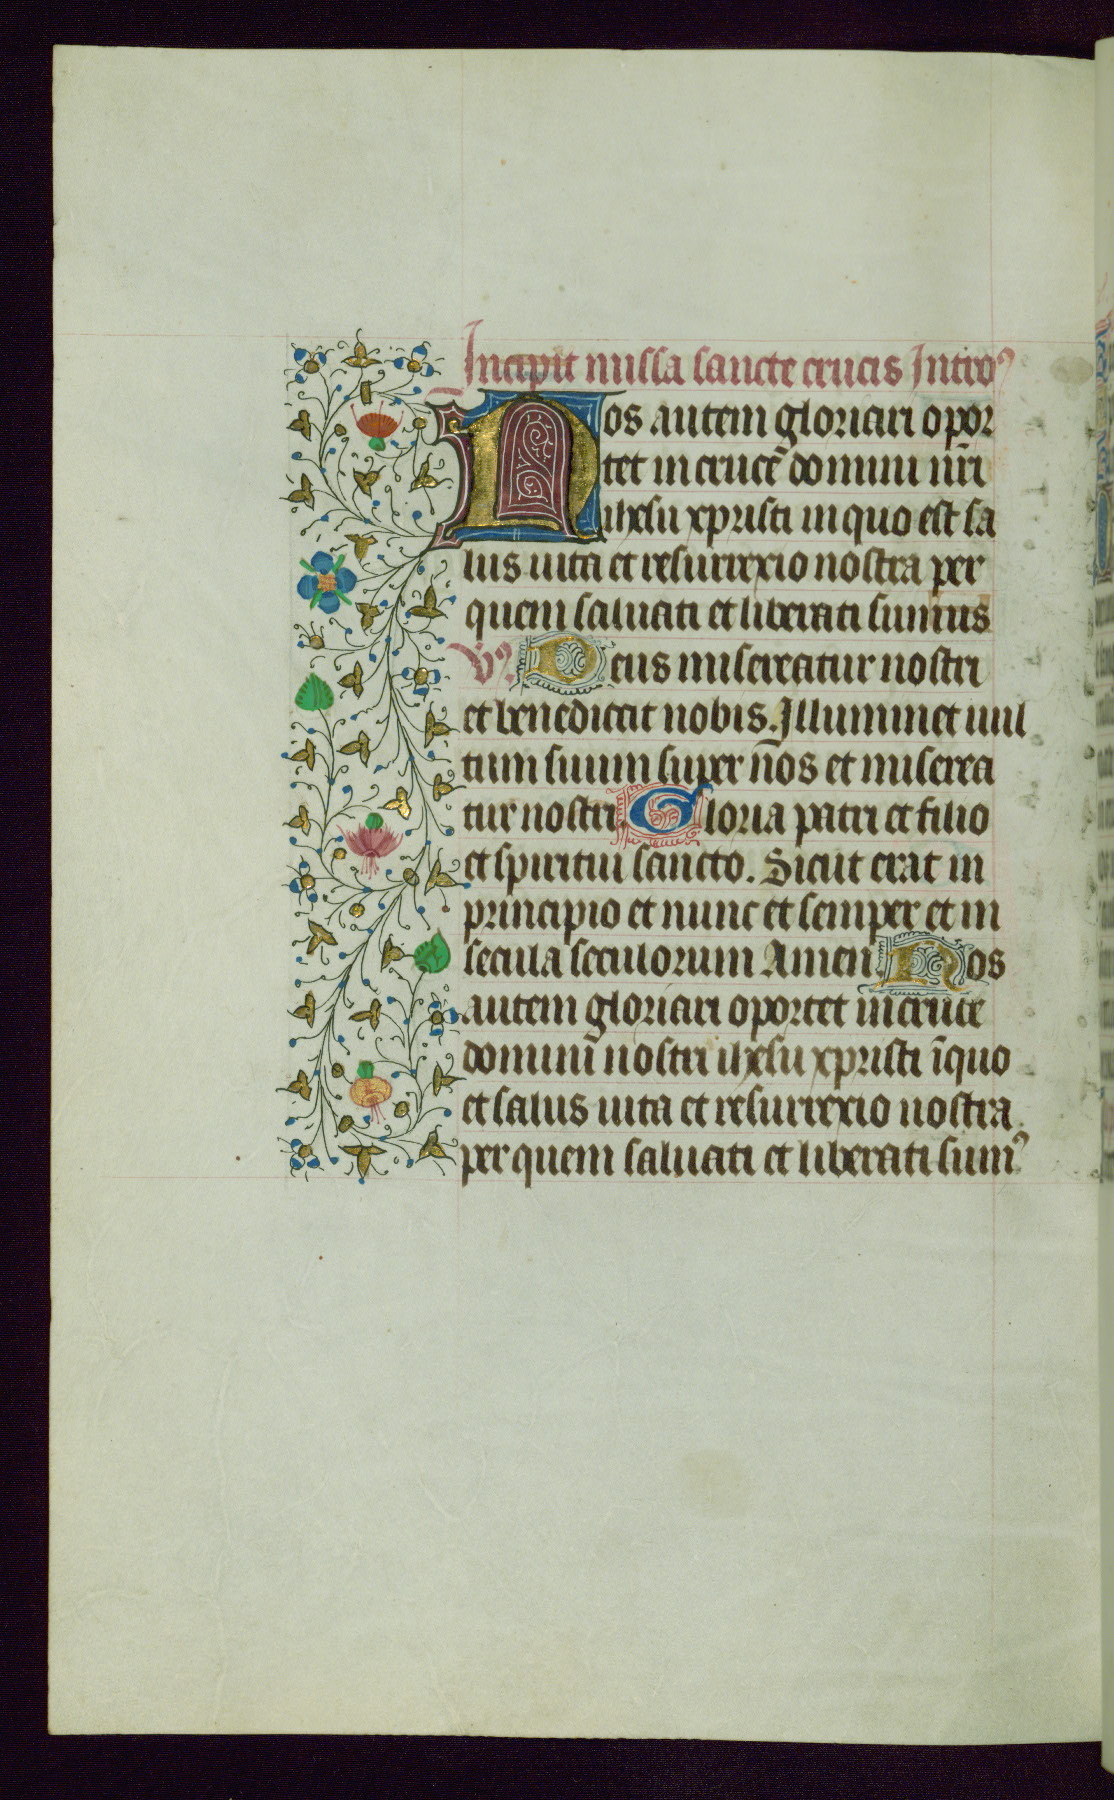 Incipit missa sancte crucis Introꝰ
Nos autem gloriari opor
tet in crucē domini nr̄i
ihesu xpristi in quo est sa
lus uita et resurrexio nostra per
quem saluati et liberati sumus
Vꝰ. Deus misereatur nostri
et benedicat nobis. Illuminet uul
tum suum super nos et miserea
tur nostri. Gloria patri et filio
et spiritui sancto. Sicut erat in
principio et nunc et semper et in
secula seculorum Amen. Nos
autem gloriari oportet in cruce
domini nostri ihesu xpristi ī quo
et salus uita et resurrexio nostra
per quem saluati et liberati sumꝰ